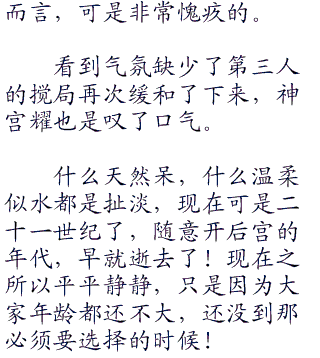 而言，可是非常愧疚的。
看到气氛缺少了第三人
的搅局再次缓和了下来，神
宫耀也是叹了口气。
什么天然呆，什么温柔
似水都是扯淡，现在可是二
十一世纪了，随意开后宫的
年代，早就逝去了！现在之
所以平平静静，只是因为大
家年龄都还不大，还没到那
必须要选择的时候！